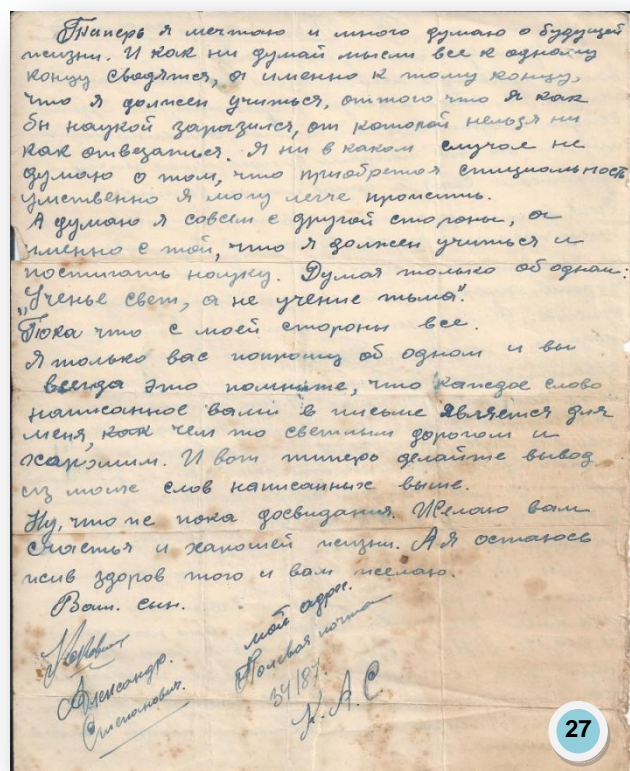 Типерь я мечтаю и много думаю о будущей
жизни. И как ни думай мысли все к одному
концу сводятся, а именно к тому концу,
что я должен учиться, оттого что я как
бы наукой заразился, от которой нельзя ни
как отвезаться. Я ни в каком случае не
думаю о том, что приобретая специальность
умственно я могу легче прожить.
А думаю я совсем с другой стороны, а
именно с той, что я должен учиться и
постигать науку. Думая только об одном:
"Ученье свет, а не учение тьма".
Пока что с моей стороны все.
Я только вас попрошу об одном и вы
всегда это помните, что каждое слово
написанное вами в письме является для
меня, как чем то светлым дорогом и
харошим. И вот типерь делайте вывод
из моих слов написанных выше.
Ну, что же пока досвидания. Желаю вам
счастья и харошей жизни. А я остаюсь
жив здоров того и вам желаю.
Ваш. сын.
Александр.
Степанович.
мой адрес.
Полевая почта
34187.
К. А. С
27